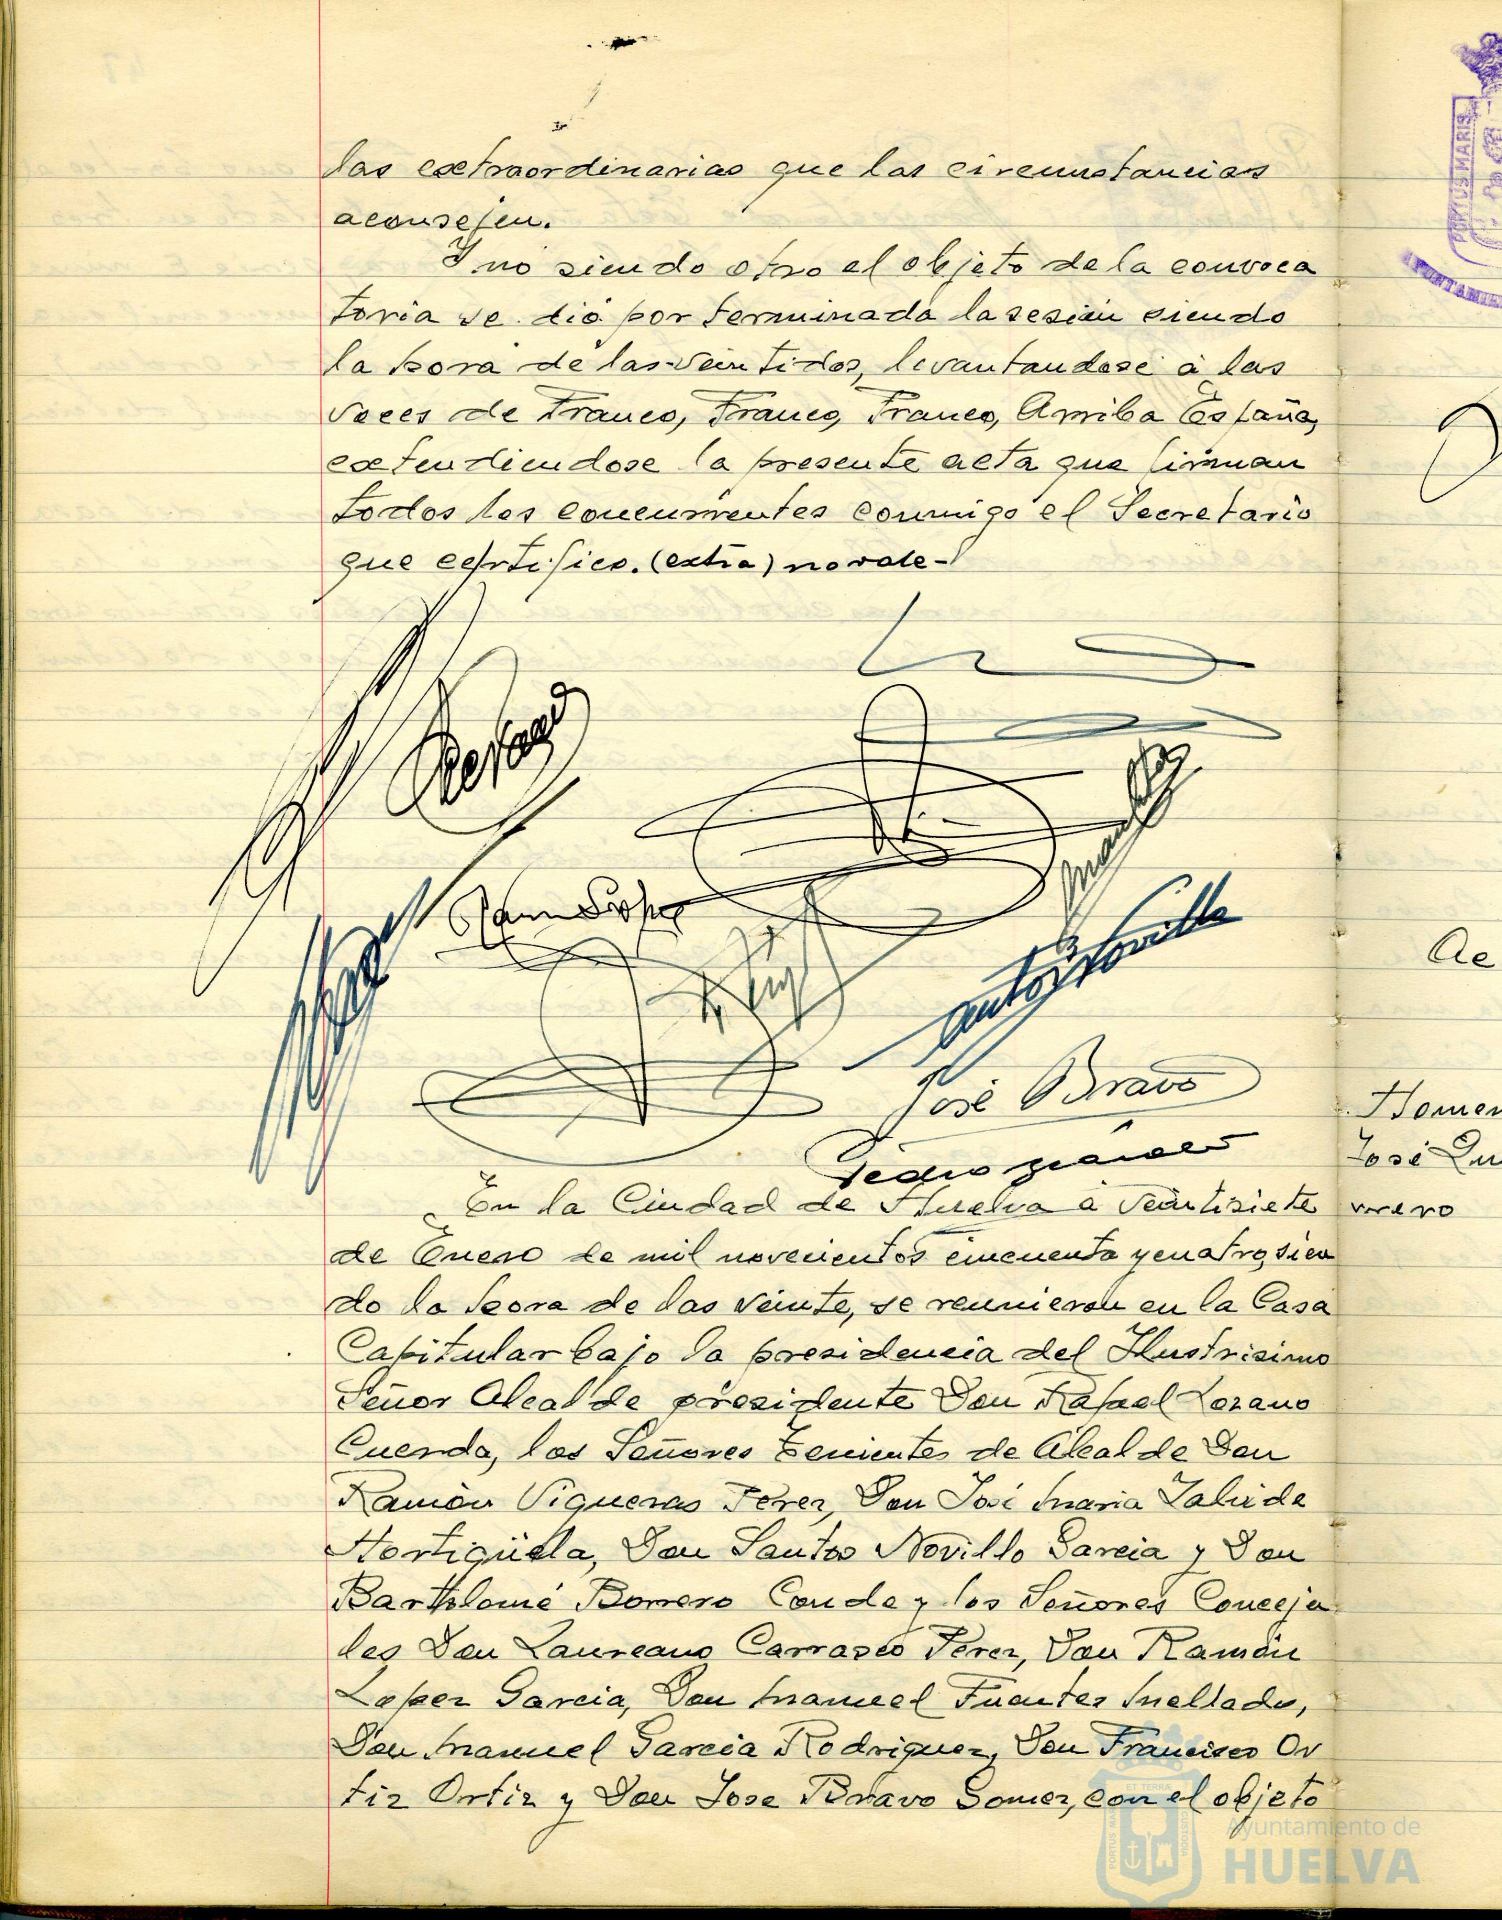 las extraordinarias que las circunstancias
aconsejen.
Y no siendo otro el objeto de la convoca
toria se dió por terminada la sesión siendo
la hora de las veintidos, levantandose a las
voces de Franco, Franco, Franco, Arriba España,
extendiendose la presente acta que firman
todos los concurrentes conmigo el Secretario
que certifico. (extra) no vale-
José Bravo
En la Ciudad de Huelva a veintisiete
de Enero de mil novecientos cincuenta y cuatro, sien
do la hora de las veinte, se reunieron en la Casa
Capitular bajo la presidencia del Ilustrisimo
Señor Alcalde presidente Don Rafael Lozano
Cuerda, los Señores Tenientes de Alcalde Don
Ramón Vigueras Perez, Don José Maria Zalvide
Hortigüela, Don Santos Novillo Garcia y Don
Bartolomé Borrero Conde y los Señores Conceja
les Don Laureano Carrasco Perez, Don Ramón
Lopez Garcia, Don Manuel Fuentes Mellado,
Don Manuel Garcia Rodriguez, Don Francisco Or
tiz Ortiz y Don Jose Bravo Gomez, con el objeto
PORTUS MARIS
Ac
Homen
José
Ayuntamiento de
HUELVA